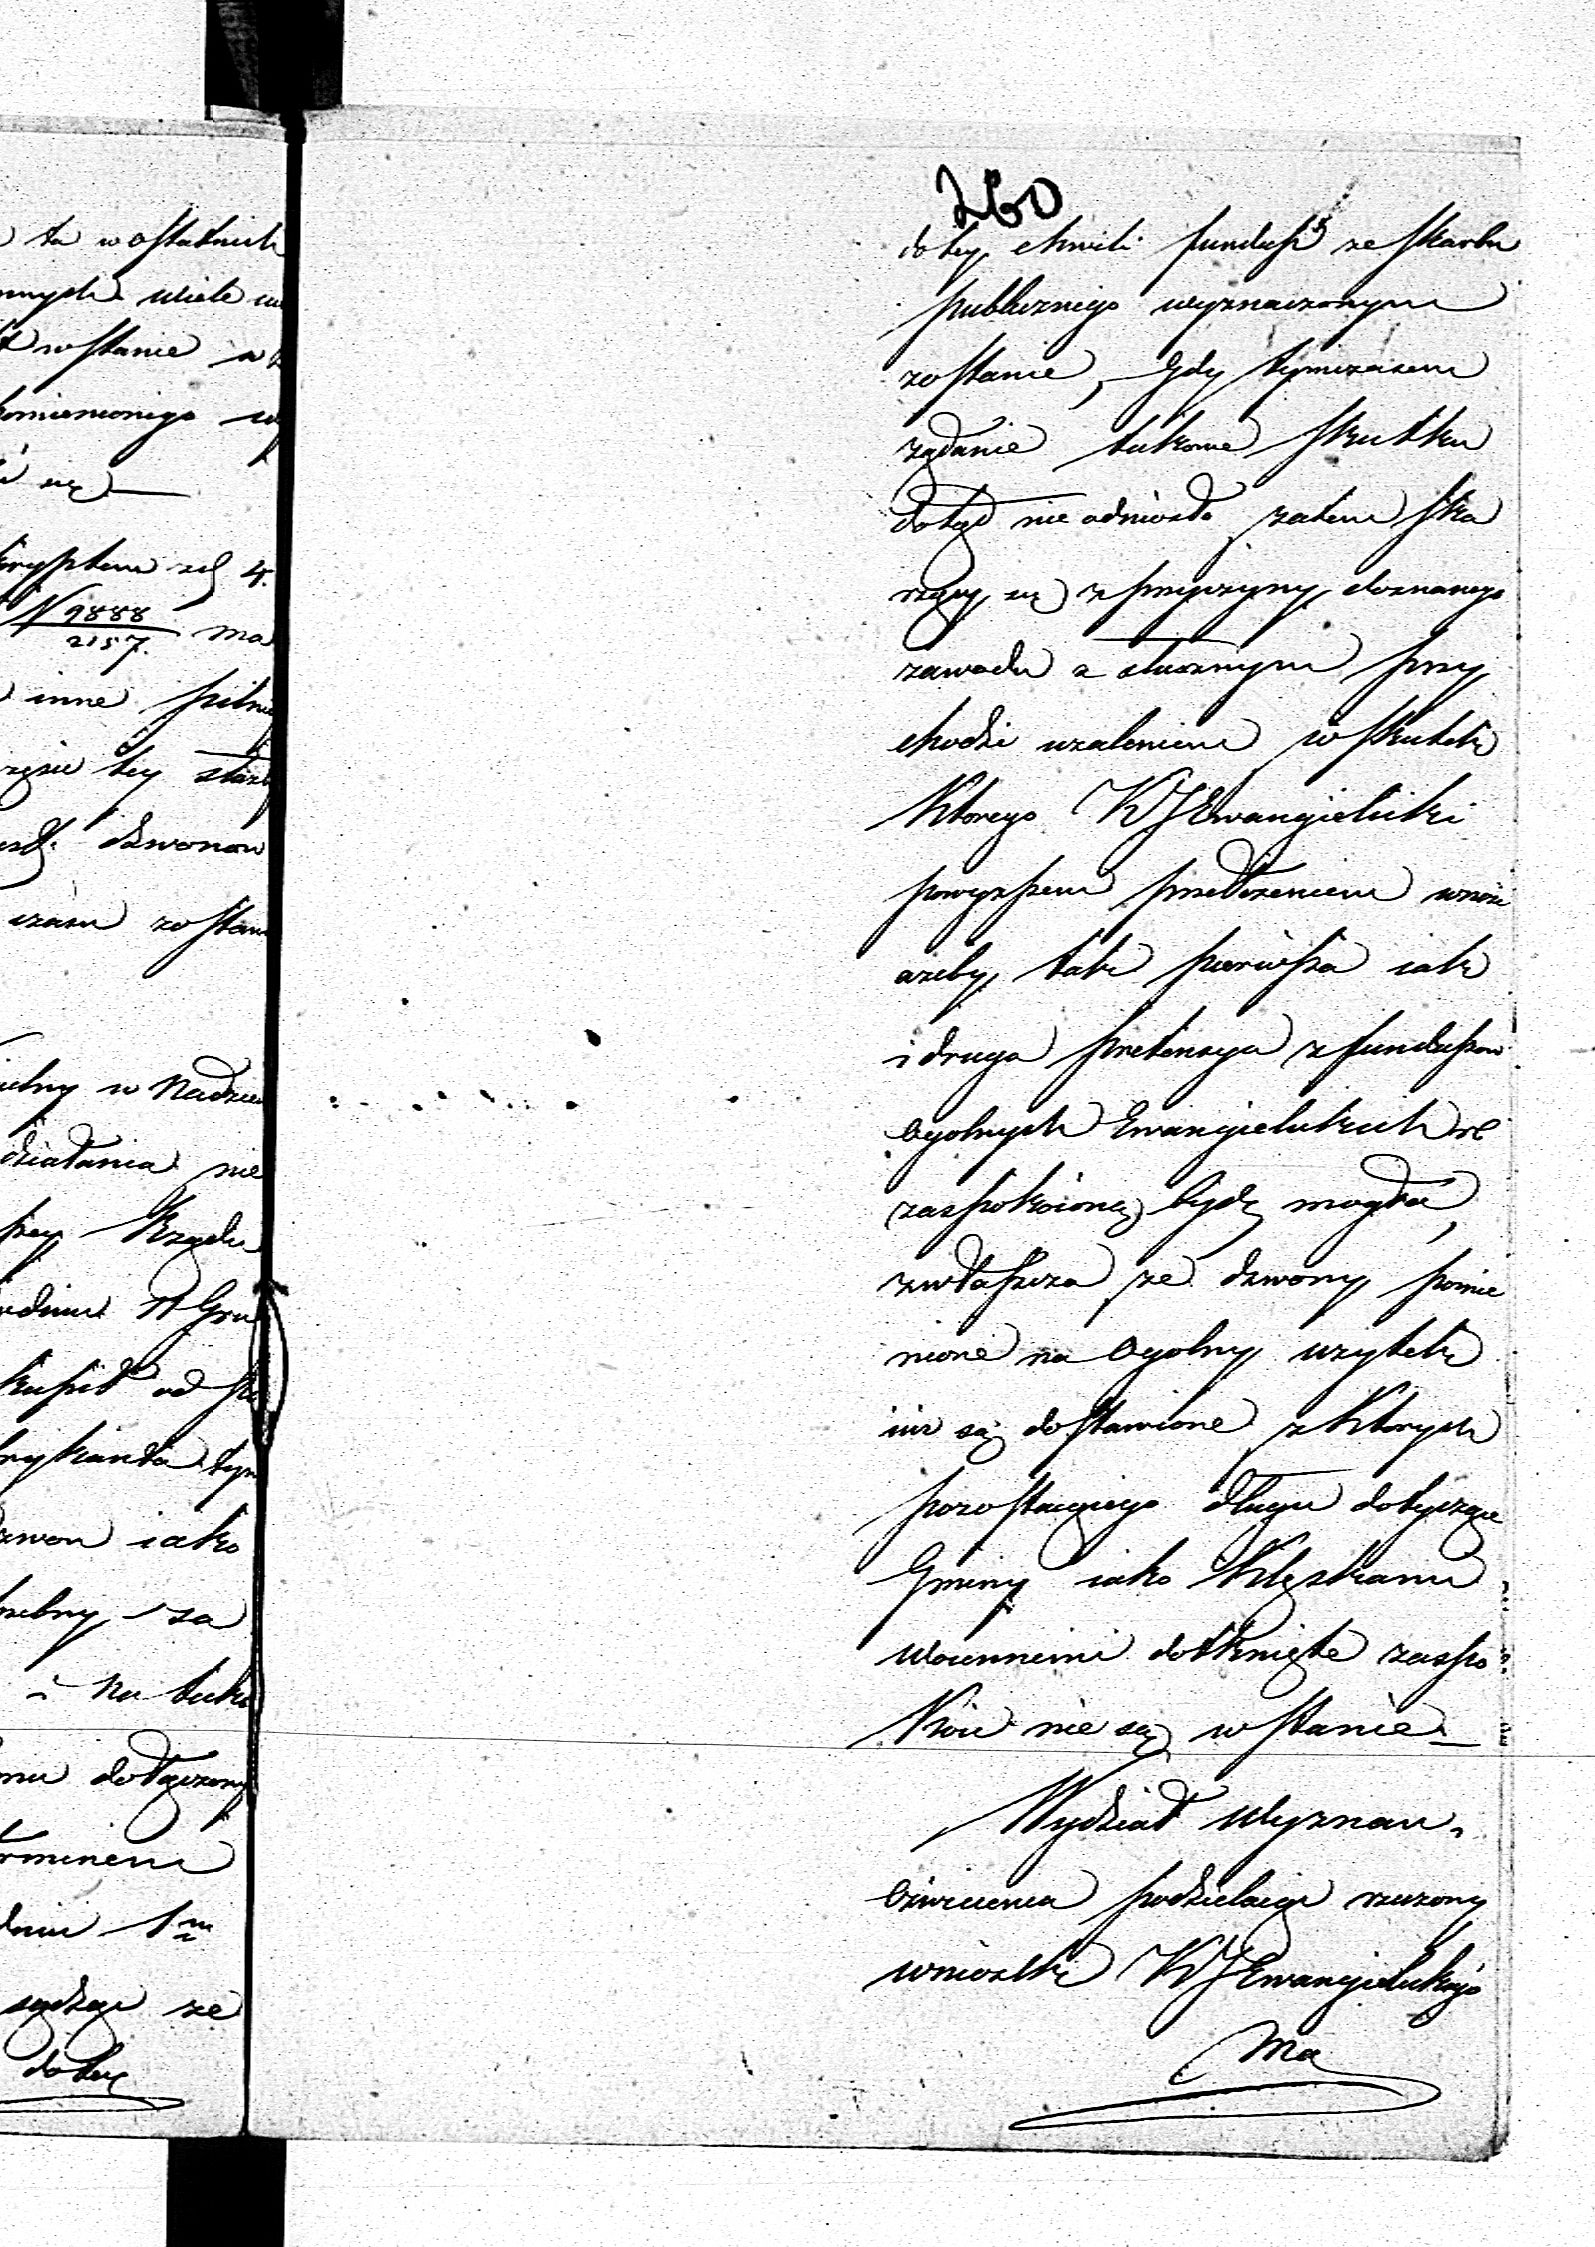 ta w ostatnich
wiele
w stanie
się
4.
N 9888
2157. ma
inne pilne
tey
dzwonow
czasu zostan
w Nadziei
działania nie
Rządu
kupił od
iako
za
i na
dołączony
terminem
dniu 1m
sądząc ze
do tey
260
do tey chwili fundusz ze skarbu
publicznego wyznaczonym
zostanie, Gdy tymczasem
ządanie takowe skutku
dotąd nie odniosło, zatem ska
rzący się z przyczyny doznanego
zawodu z słusznym przy
chodzi uzaleniem w skutek
Ktorego KJ Ewangielicki
powyzszem przełozeniem wnosi
azeby tak pierwsza iak
i druga pretensya z funduszow
Ogolnych Ewangielickich
zaspokoioną bydz mogła,
zwłaszcza ze dzwony pomie
nione na Ogolny uzytek
iuz są dostawione z Ktorych
pozostaiącego długu dotyczące
Gminy iako Klęskami
woiennemi dotknięte zaspo
koić nie są w stanie
Wydział Wyznan
Oświecenia podzielaiąc rzeczony
wniosek KJ Ewangielickiego
Ma